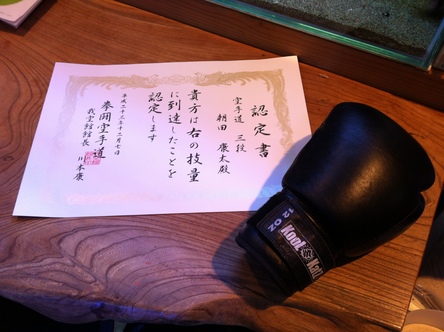 認定書
空手道 三段
朝田 康太殿
貴方は右の技量
に到達したことを
認定します
平成二十三年十二月七日
拳闘空手道
我空館館長
川本康
12 OZ